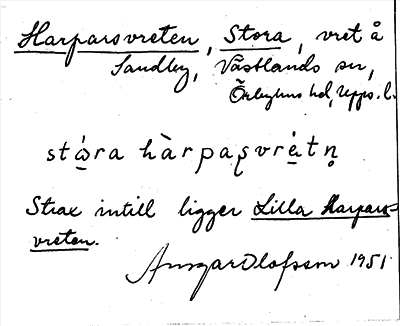 Harparsvreten, Stora, vret å
Sandby, Västlands sn,
Örbyhus hd, Upps. l.
stɷ́ra hàrpaʂvrét n̥
Strax intill ligger Lilla Harpars-
vreten.
Ansgar Olofsson 1951